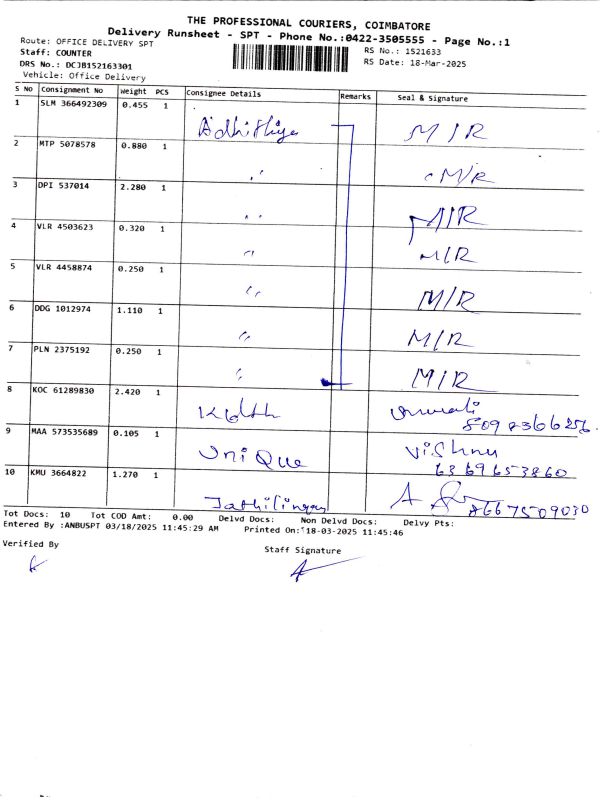 THE PROFESSIONAL COURIERS, COIMBATORE
Delivery Runsheet - SPT - Phone No.:0422-3505555 - Page No.:1
Route: OFFICE DELIVERY SPT
RS No.: 1521633
Staff: COUNTER
RS Date: 18-Mar-2025
DRS No.: DCJB152163301
Vehicle: Office Delivery
S NO Consignment No Weight PCS Consignee Details Remarks Seal & Signature
1 SLM 366492309 0.455 1 M/R
2 MTP 5078578 0.880 1 " M/R
3 DPI 537014 2.280 1 " M/R
4 VLR 4503623 0.320 1 " M/R
5 VLR 4458874 0.250 1 " M/R
6 DDG 1012974 1.110 1 " M/R
7 PLN 2375192 0.250 1 " M/R
8 KOC 61289830 2.420 1
9 MAA 573535689 0.105 1 UniQue Vishnu
6369653860
10 KMU 3664822 1.270 1
8667509030
Tot Docs: 10 Tot COD Amt: 0.00 Delvd Docs: Non Delvd Docs: Delvy Pts:
Entered By :ANBUSPT 03/18/2025 11:45:29 AM Printed On:18-03-2025 11:45:46
Verified By
Staff Signature